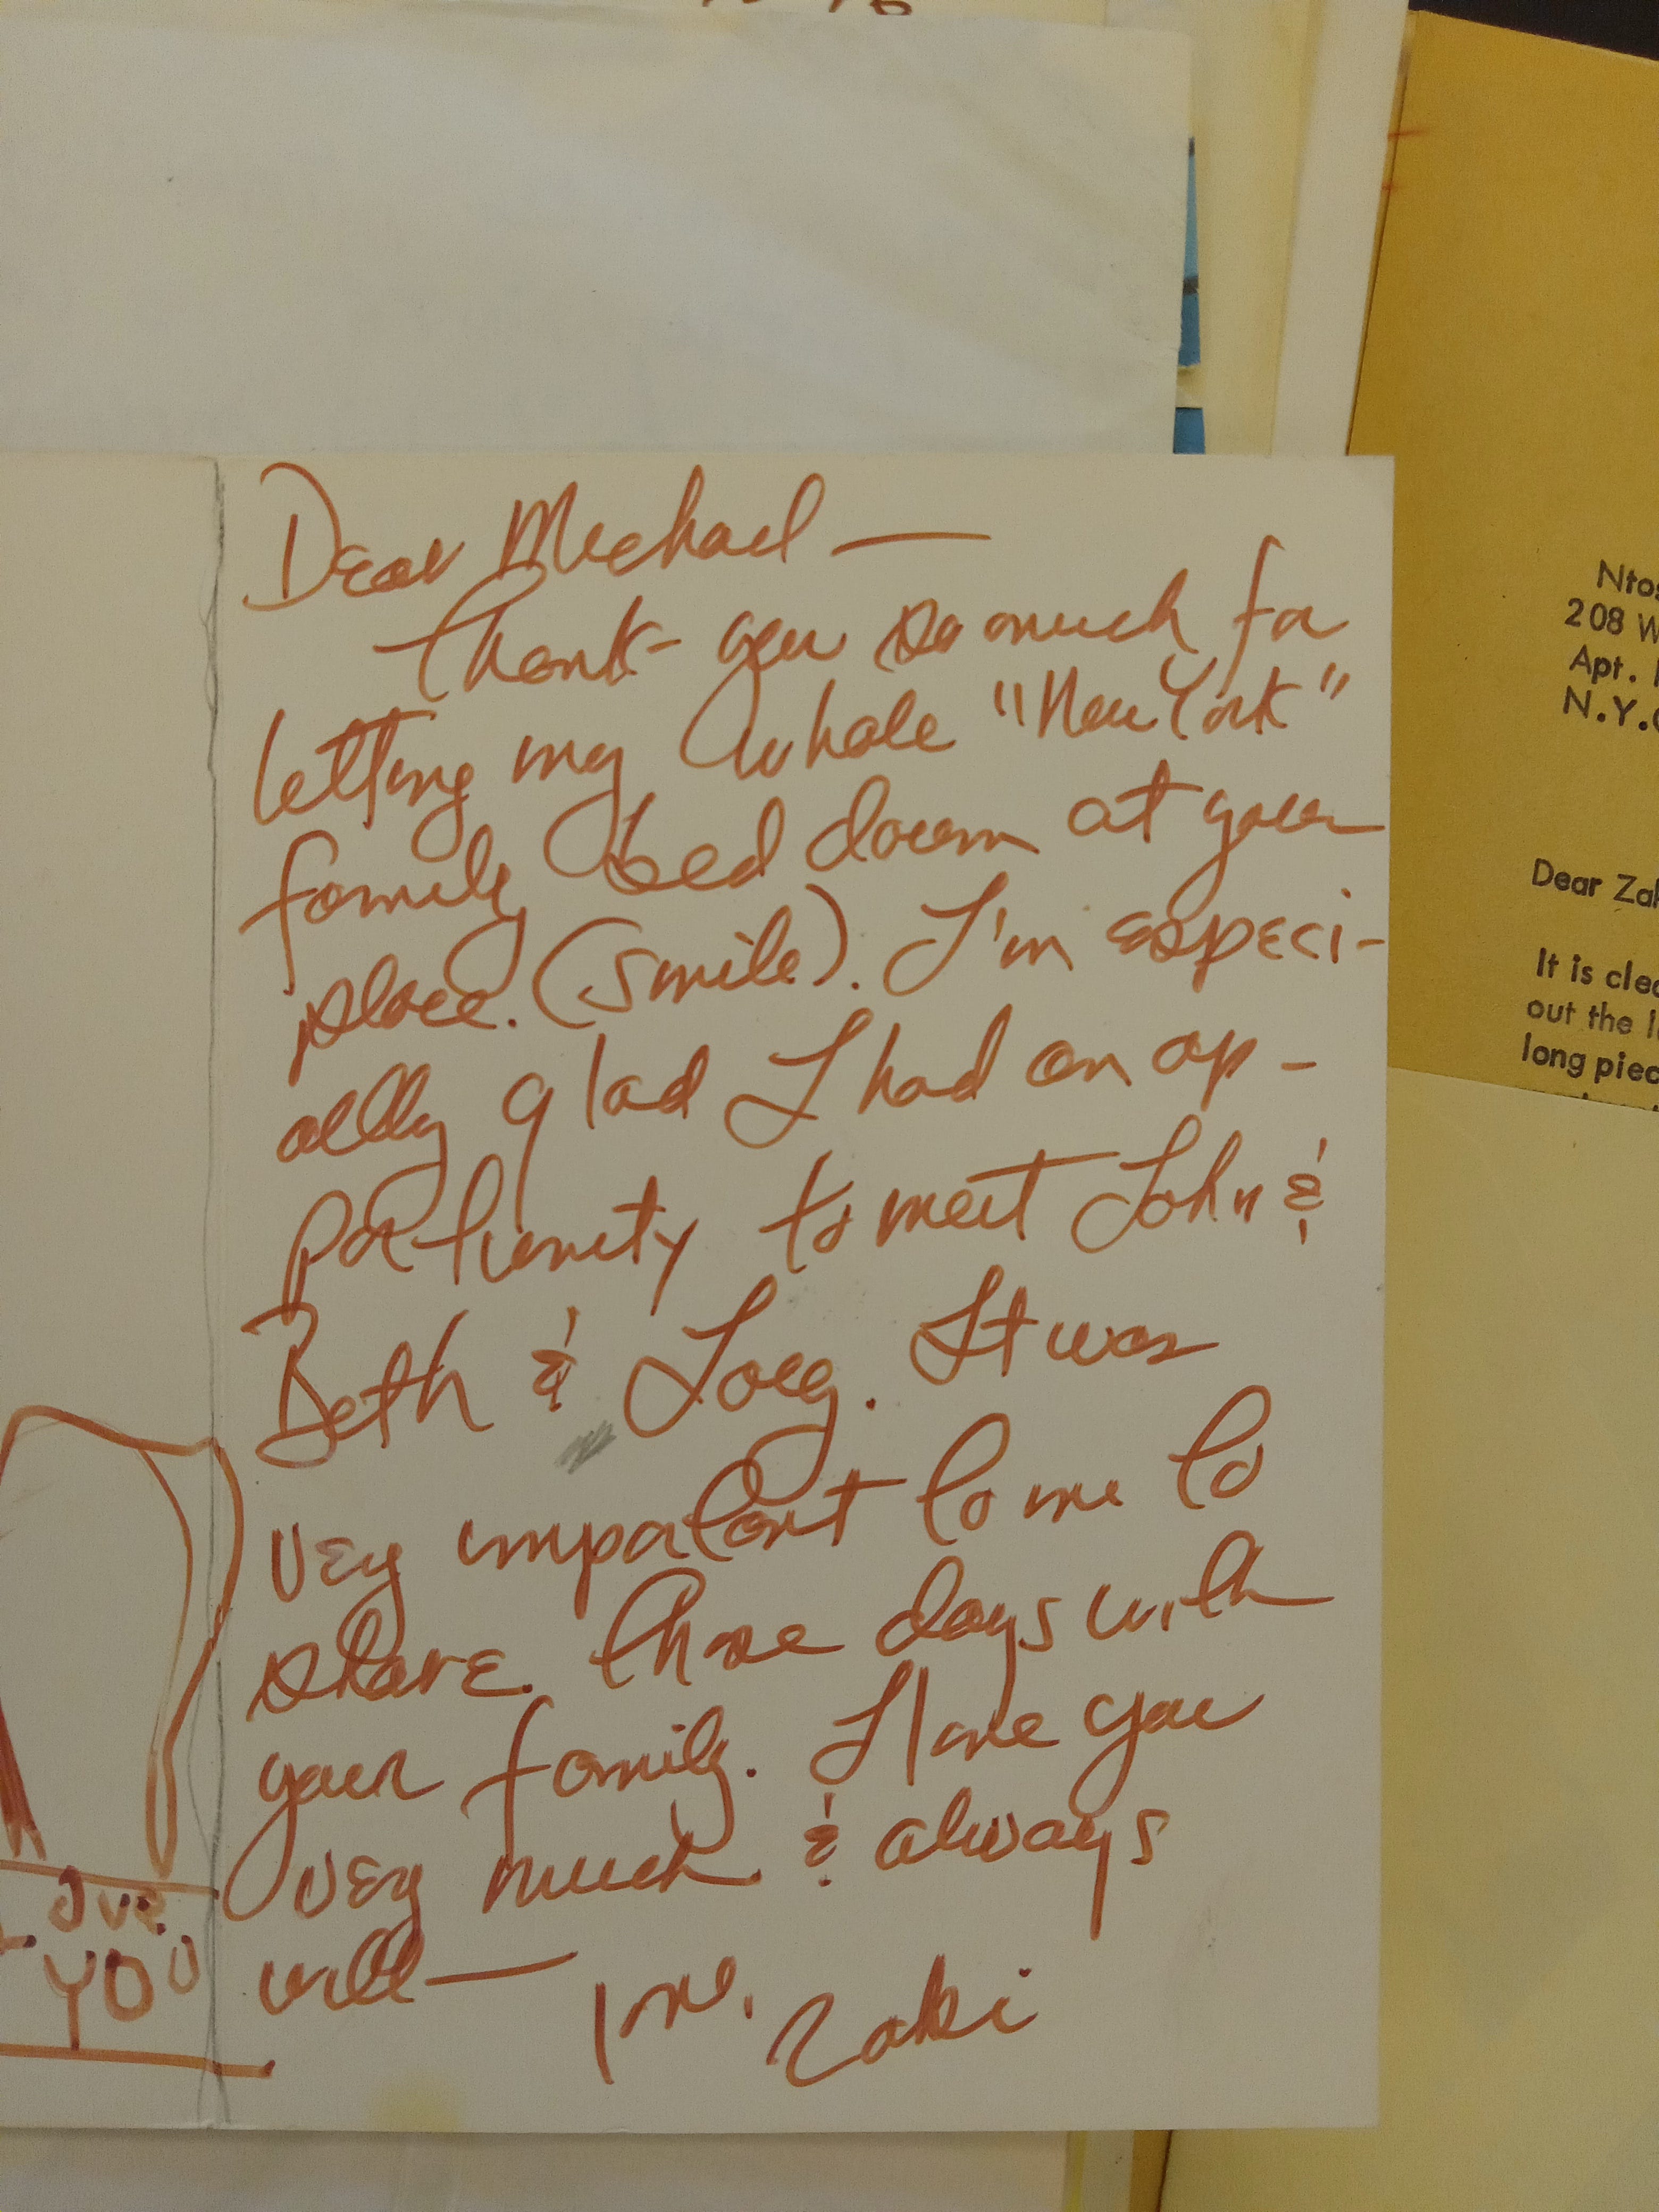 Dear Michael —
Thank you so much for
letting my whole "New York"
family bed down at your
place. (smile). I'm especi-
ally glad I had an op-
portunity to meet John &
Beth & Joey. It was
very important to me to
share those days with
your family. I love you
very much & always
will — love, Zaki
ove
YOU
Ntos
208 W
Apt.
N.Y.C
Dear Zak
It is clea
out the li
long piec